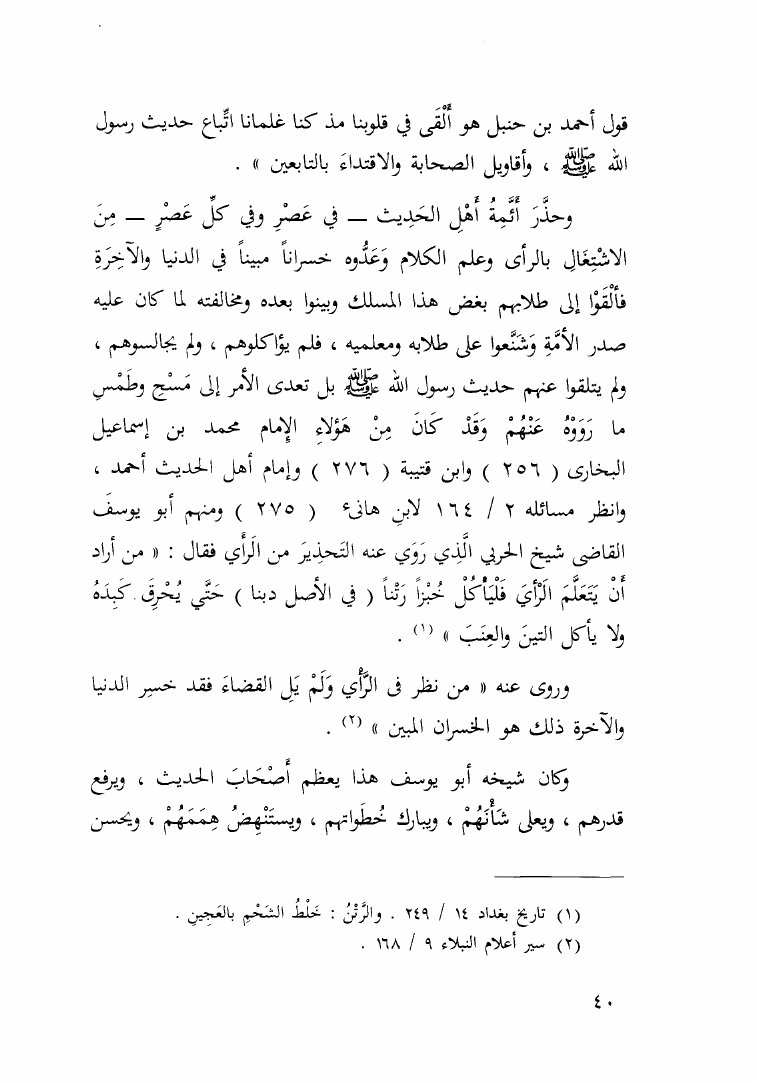 قول أحمد بن حنبل هو أَلْقَى في قلوبنا مذ كنا غلمانا اتِّباع حديث رسول
الله ﷺ ، وأقاويل الصحابة والاقتداءَ بالتابعين » .
وحذَّرَ أَئَمِةُ أَهْلِ الحَدِيث – في عَصْرِ وفي كلِّ عَصْرٍ – مِنَ
الاشْتِغَالِ بالرأى وعلم الكلام وَعَدُّوه خسراناً مبيناً في الدنيا والآخِرَةِ
فأَلْقَوْا إلى طلابهم بغض هذا المسلك وبينوا بعده ومخالفته لما كان عليه
صدر الأمَّةِ وَشَنَّعوا على طلابه ومعلميه ، فلم يؤاكلوهم ، ولم يجالسوهم ،
ولم يتلقوا عنهم حديث رسول الله ﷺ بل تعدى الأمر إلى مَسْحِ وطَمْسِ
ما رَوَوْهُ عَنْهُمْ وَقَدْ كَانَ مِنْ هَؤلاءِ الإمام محمد بن إسماعيل
البخارى ( ٢٥٦ ) وابن قتيبة ( ٢٧٦ ) وإمام أهل الحديث أحمد ،
وانظر مسائله ٢ / ١٦٤ لابنِ هانىء ( ٢٧٥ ) ومنهم أبو يوسفَ
القاضى شيخ الحربي الَّذِي رَوَي عنه التَحذِيرَ من الَرأي فقال : « من أراد
أَنْ يَتَعَلَّمَ الَرْأيَ فَلْيَأْكُلْ خُبْزاً رَثْناً ( في الأصل دبنا ) حَتَّي يُحْرِقَ كَبِدَهُ
ولا يأكل التينَ والعِنَبَ » (١) .
وروى عنه « من نظر فى الرَّأْي وَلَمْ يَلِ القضاءَ فقد خسِر الدنيا
والآخرة ذلك هو الخسران المبين » (٢) .
وكان شيخه أبو يوسف هذا يعظم أَصْحَابَ الحديث ، ويرفع
قدرهم ، ويعلى شَأْنَهُمْ ، ويبارك خُطَواتهم ، ويستَنْهِضُ هِمَمَهُمْ ، ويحسن
(١) تاريخ بغداد ١٤ / ٢٤٩ . والرَّثْنُ : خَلْطُ الشَحْمِ بالعَجِينِ .
(٢) سير أعلام النبلاء ٩ / ١٦٨ .
٤٠